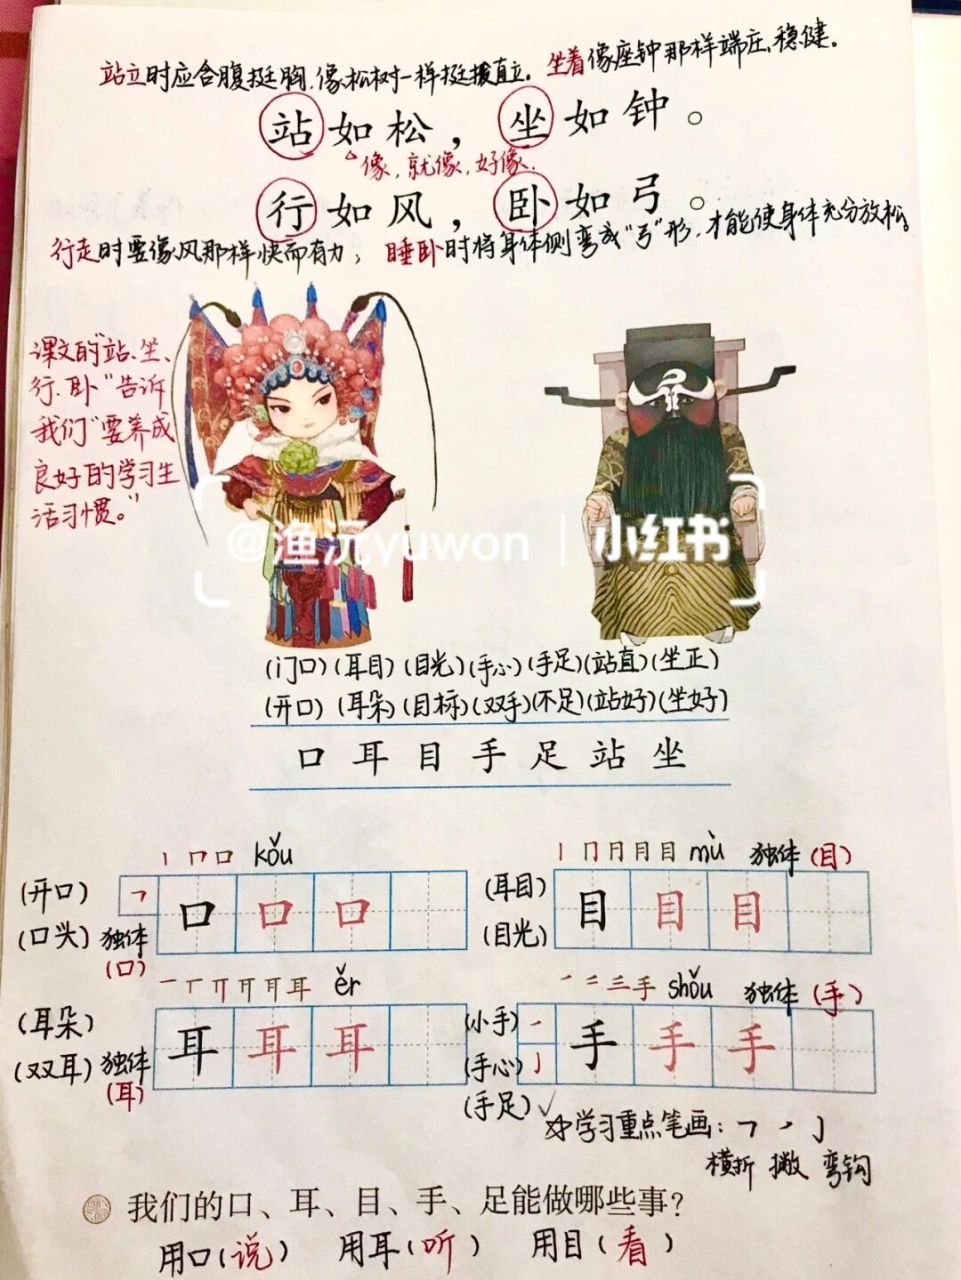 站立时应含腹挺胸,像松树一样挺拔直立。坐着像座钟那样端庄、稳健。
站如松，坐如钟。
像，就像，好像.
行如风，卧如弓。
行走时要像风那样快而有力； 睡卧时将身体侧弯成“弓”形，才能使身体充分放松。
课文的“站、坐、
行、卧”告诉
我们“要养成
良好的学习生
活习惯。”
@渔沅yuwon | 小红书
(门口)(耳目)(目光)(手心)(手足)(站直)(坐正)
(开口)(耳朵)(目标)(双手)(不足)(站好)(坐好)
口 耳 目 手 足 站 坐
丨 冂 口 kǒu
(开口) ㇕ 口 口 口
(口头) 独体
(口)
丨 冂 月 月 目 mù 独体 (目)
(耳目) 目 目 目
(目光)
一 丅 丌 耳 ěr
(耳朵) 耳 耳 耳
(双耳) 独体
(耳)
㇒ 二 三 手 shǒu 独体 (手)
(小手) ㇒ 手 手 手
(手心) 亅
(手足) ✓
☆学习重点笔画：㇕ ㇒ 亅
横折 撇 弯钩
我们的口、耳、目、手、足能做哪些事？
用口(说) 用耳(听) 用目(看)